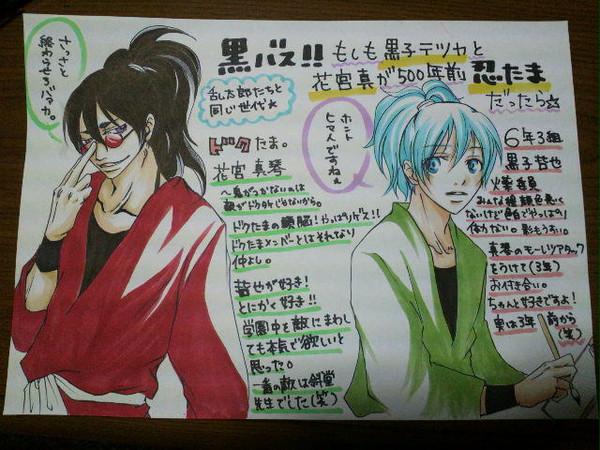 さっさと
終わらせろ
バァカ。
黒バス!!
もしも黒子テツヤと
花宮真が500年前
忍たま
だったら☆
乱太郎たちと
同じ世代☆
ドクたま。
花宮 真琴
ドクたまの頭脳!やっぱりゲス!!
ドクたまメンバーとはそれなり
仲よし。
哲也が好き!
とにかく好き!!
学園中を敵にまわし
ても本気で欲しいと
思った。
一番の敵は斜堂
先生でした(笑)
ホント
ヒマ人ですねぇ
6年3組
黒子哲也
火薬委員
みんな程顔色悪く
ないけど色白でやっぱり
体力ない。影もうすい。
真琴のモーレツアタック
をうけて(3年)
お付き合い。
ちゃんと好きですよ!
実は3年前から
(笑)